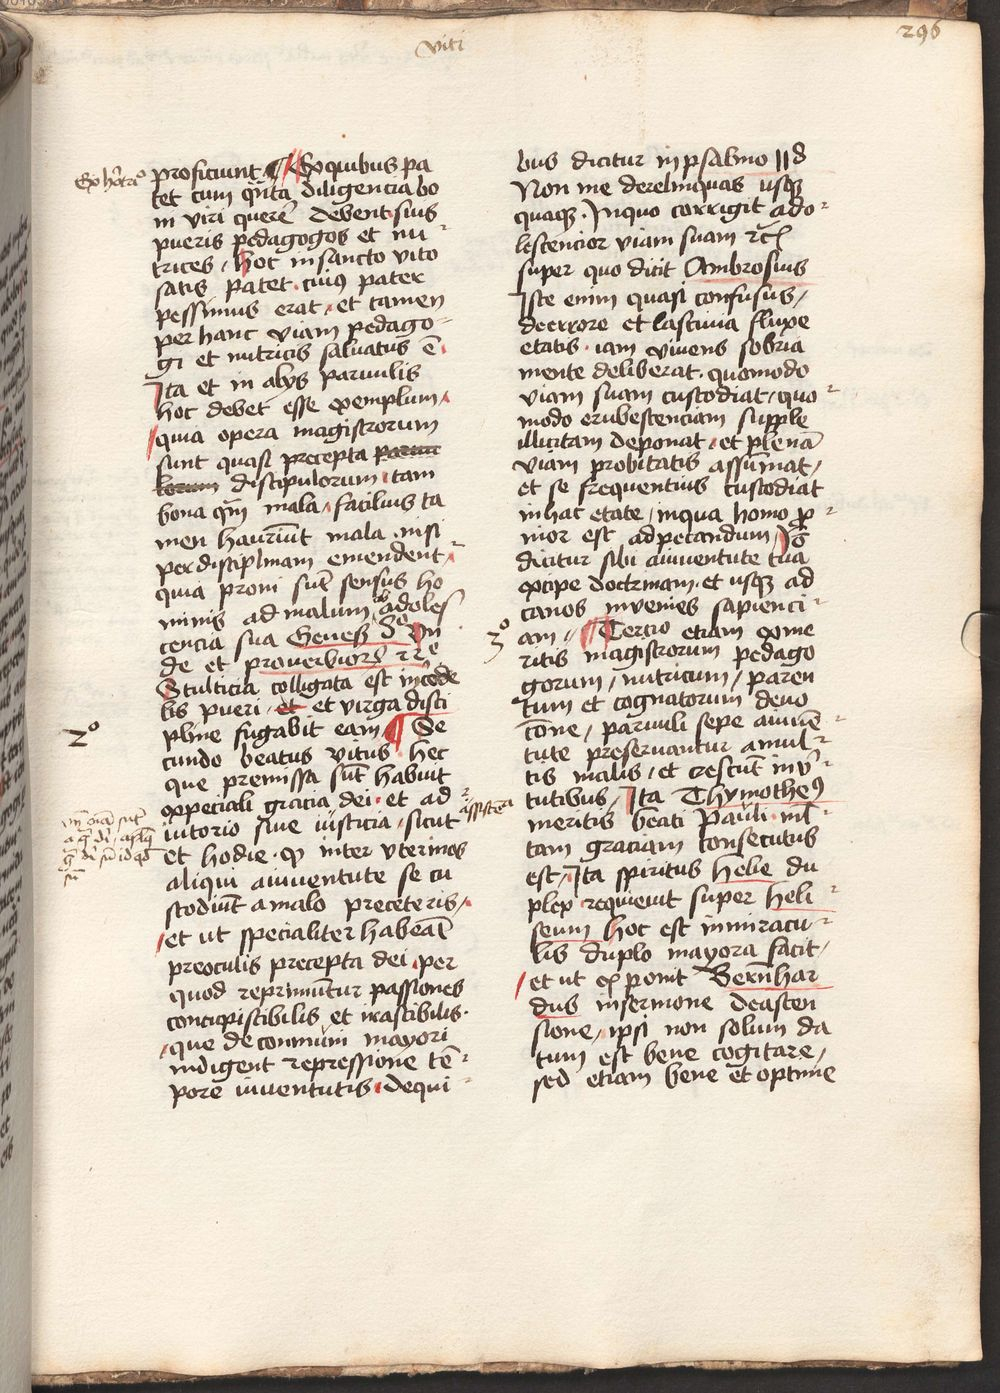 viti
296
proficiunt ¶ Ex quibus pa
tet cum q̄nta diligencia bo
ni viri querē debent suis
pueris pedagogos et nu
trices / hoc in sancto vito
satis patet · cui9 pater
pessimus erat / et tamen
per hanc viam pedago
gi et nutricis saluatus ē
Ita et in alys paruulis
hoc debet esse exemplum
quia opera magistrorum
sunt quasi precepta paruu
lorum discipulorum · tam
bona qm̄ mala / facilius ta
men hauriūt mala · nisi
per disciplinam emendent
quia proni sūt sensus ho
minis ad malum ab adoles
cencia sua Genes 8o Vn
de et prouerbiorū 22e
Stultitia colligata est in corde
bis pueri / et et virga disci
pline fugabit eam ¶ Se
2o
cundo beatus vitus hec
que premissa sūt habuit
ex speciali gracia dei · et ad
iutorio siue iusticia / sicut assistencia
et hodie · qp inter vterinos
aliqui a iuuentute se cu
stodiūt a malo pre ceteris /
et ut specialiter habeāt
pre oculis precepta dei · per
quod reprimūtur passiones
concupiscibilis et irascibilis ·
que de communi mayori
indigent repressione tē
pore iuuentutis · de qui
bus dicitur in psalmo 118
Non me derelinquas usqz
quaqz · In quo corrigit ado
lescencior viam suam
super quo dicit Ambrosius
Iste enim quasi confusus /
de errore et lasciuia fluxe
etatis · iam viuens sobria
mente deliberat · quomodo
viam suam custodiat / quo
modo erubescenciam supple
illicitam deponat · et plenā
viam probitatis assūmat /
et se frequentius custodiat
in hac etate / in qua homo p
nior est ad peccandum /
dicitur sibi a iuuentute tua
excipe doctrinam · et usqz ad
canos inuenies sapienci
3o
am ¶ Tercio etiam ex me
ritis magistrorum pedago
gorum / nutricum / paren
tum et cognatorum deuo
cōne / paruuli sepe a iuuē
tute preseruantur a mul
tis malis / et crescūt in v̄
tutibus / Ita Thymothe9
meritis beati Pauli · ml
tam graciam consecutus
est / Ita spiritus helie du
plex requieuit super heli
seum hoc est in miracu
lis duplo mayora facit /
et ut exponit Bernhar
dus in sermone de ascen
sione / ipsi non solum da
tum est bene cogitare /
sed etiam bene et optime